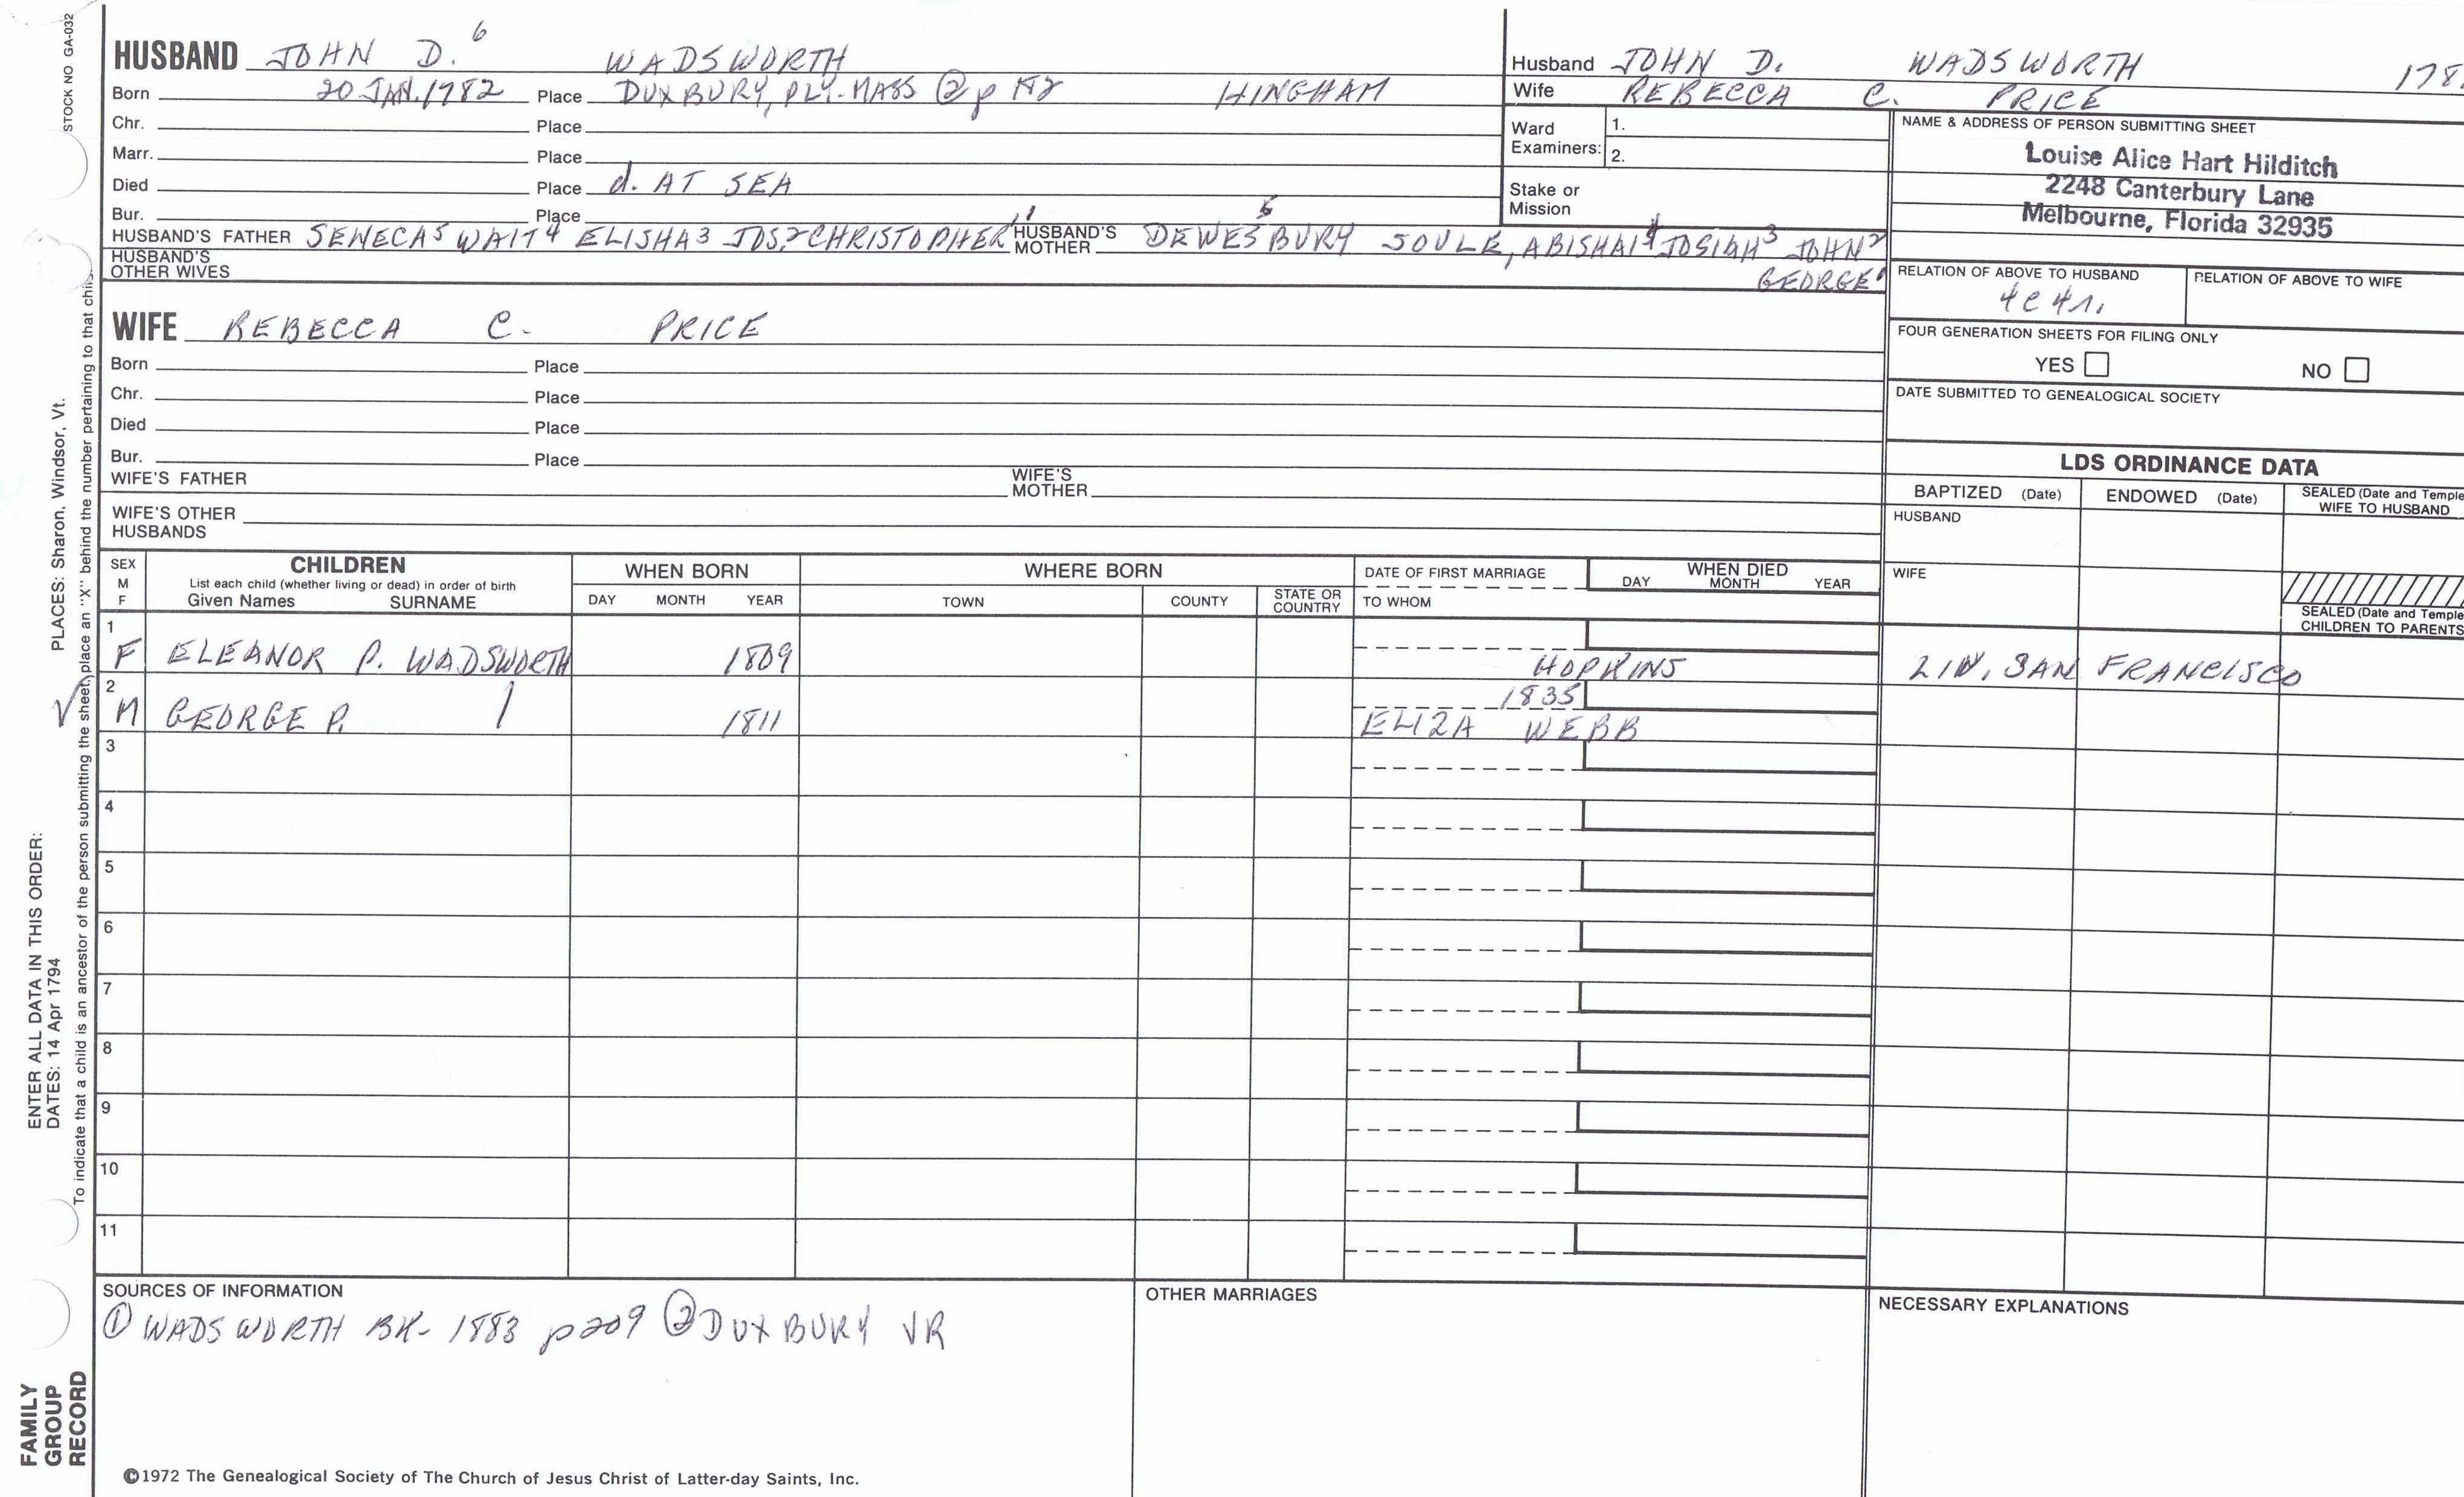 STOCK NO GA-032
HUSBAND JOHN D.⁶ WADSWORTH
Born 20 JAN. 1782 Place DUXBURY, PLY. MASS ② p HINGHAM
Chr. Place
Marr. Place
Died Place d. AT SEA
Bur. Place
HUSBAND'S FATHER SENECA⁵ WAIT⁴ ELISHA³ JOS.² CHRISTOPHER¹ HUSBAND'S MOTHER DEWESBURY⁵ SOULE, ABISHAI⁴ JOSIAH³ JOHN²
GEORGE¹
HUSBAND'S OTHER WIVES
WIFE REBECCA C. PRICE
Born Place
Chr. Place
Died Place
Bur. Place
WIFE'S FATHER WIFE'S MOTHER
WIFE'S OTHER HUSBANDS
Husband JOHN D. WADSWORTH 178
Wife REBECCA C. PRICE
Ward Examiners: 1.
2.
Stake or Mission
NAME & ADDRESS OF PERSON SUBMITTING SHEET
Louise Alice Hart Hilditch
2248 Canterbury Lane
Melbourne, Florida 32935
RELATION OF ABOVE TO HUSBAND RELATION OF ABOVE TO WIFE
4c4r.
FOUR GENERATION SHEETS FOR FILING ONLY
YES NO
DATE SUBMITTED TO GENEALOGICAL SOCIETY
LDS ORDINANCE DATA
BAPTIZED (Date) ENDOWED (Date) SEALED (Date and Temple
WIFE TO HUSBAND
HUSBAND
WIFE
SEALED (Date and Temple
CHILDREN TO PARENTS
SEX M F CHILDREN WHEN BORN WHERE BORN DATE OF FIRST MARRIAGE WHEN DIED
List each child (whether living or dead) in order of birth
Given Names SURNAME DAY MONTH YEAR TOWN COUNTY STATE OR COUNTRY TO WHOM DAY MONTH YEAR
1
F ELEANOR P. WADSWORTH 1809 HOPKINS LIV. SAN FRANCISCO
2 1835
√ M GEORGE P. 1811 ELIZA WEBB
3
4
5
6
7
8
9
10
11
SOURCES OF INFORMATION
① WADSWORTH BK- 1883 p209 ② DUXBURY VR
OTHER MARRIAGES
NECESSARY EXPLANATIONS
©1972 The Genealogical Society of The Church of Jesus Christ of Latter-day Saints, Inc.
ENTER ALL DATA IN THIS ORDER:
DATES: 14 Apr 1794 PLACES: Sharon, Windsor, Vt.
To indicate that a child is an ancestor of the person submitting the sheet, place an "X" behind the number pertaining to that child.
FAMILY
GROUP
RECORD